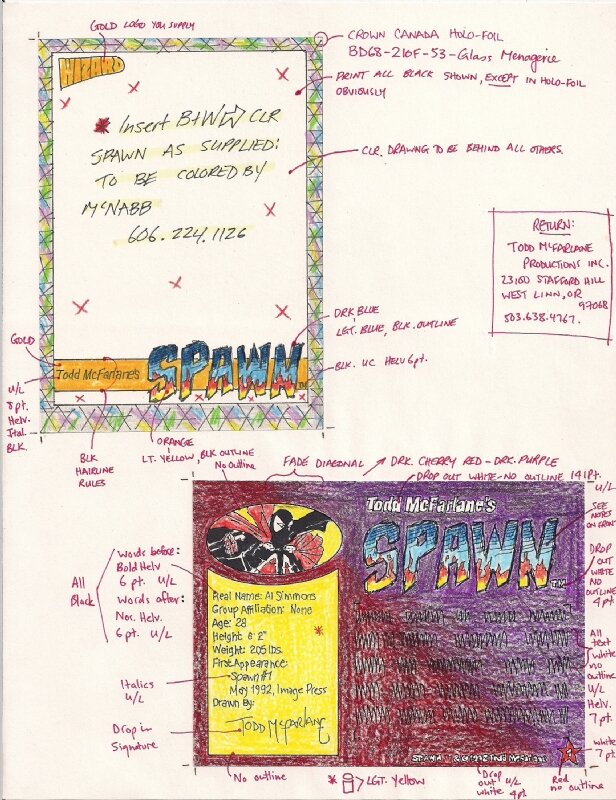 GOLD LOGO YOU SUPPLY
CROWN CANADA HOLO-FOIL
BD68-210F-53-Glass Menagerie
PRINT ALL BLACK SHOWN, EXCEPT IN HOLO-FOIL
OBVIOUSLY
WIZARD
Insert B+W CLR
SPAWN AS SUPPLIED:
TO BE COLORED BY
McNABB
606.224.1126
CLR. DRAWNG TO BE BEHIND ALL OTHERS.
RETURN:
TODD McFARLANE
PRODUCTIONS INC.
23160 STAFFORD HILL
WEST LINN, OR
97068
503.638.4767.
DRK. BLUE
LGT. BLUE, BLK. OUTLINE
BLK. UC HELV 6pt.
GOLD
U/L
8 pt.
Helv.
Ital.
BLK.
Todd McFarlane's
SPAWN
TM
BLK
HAIRLINE
RULES
ORANGE
LT. YELLOW, BLK OUTLINE
No Outline
FADE DIAGONAL
DRK. CHERRY RED - DRK. PURPLE
DROP OUT WHITE-NO OUTLINE 14 1pt.
U/L
SEE
NOTES
ON FRONT
DROP
OUT
WHITE
NO
OUTLINE
4pt.
Todd McFarlane's
SPAWN
TM
All
Black
Words before:
Bold Helv
6 pt. U/L
Words after:
Nor. Helv.
6 pt. U/L
Real Name: Al Simmons
Group Affiliation: None
Age: 28
Height: 6' 2"
Weight: 205 lbs.
First Appearance:
Spawn #1
May 1992, Image Press
Drawn By:
TODD McFARLANE
Italics
U/L
Drop in
Signature
All
text
white
no
outline
U/L
Helv.
7 pt.
white
7 pt.
SPAWN © 1992 Todd McFarlane
1
No outline
* LGT. Yellow
Drop U/L
out
white 4pt.
Red
no outline